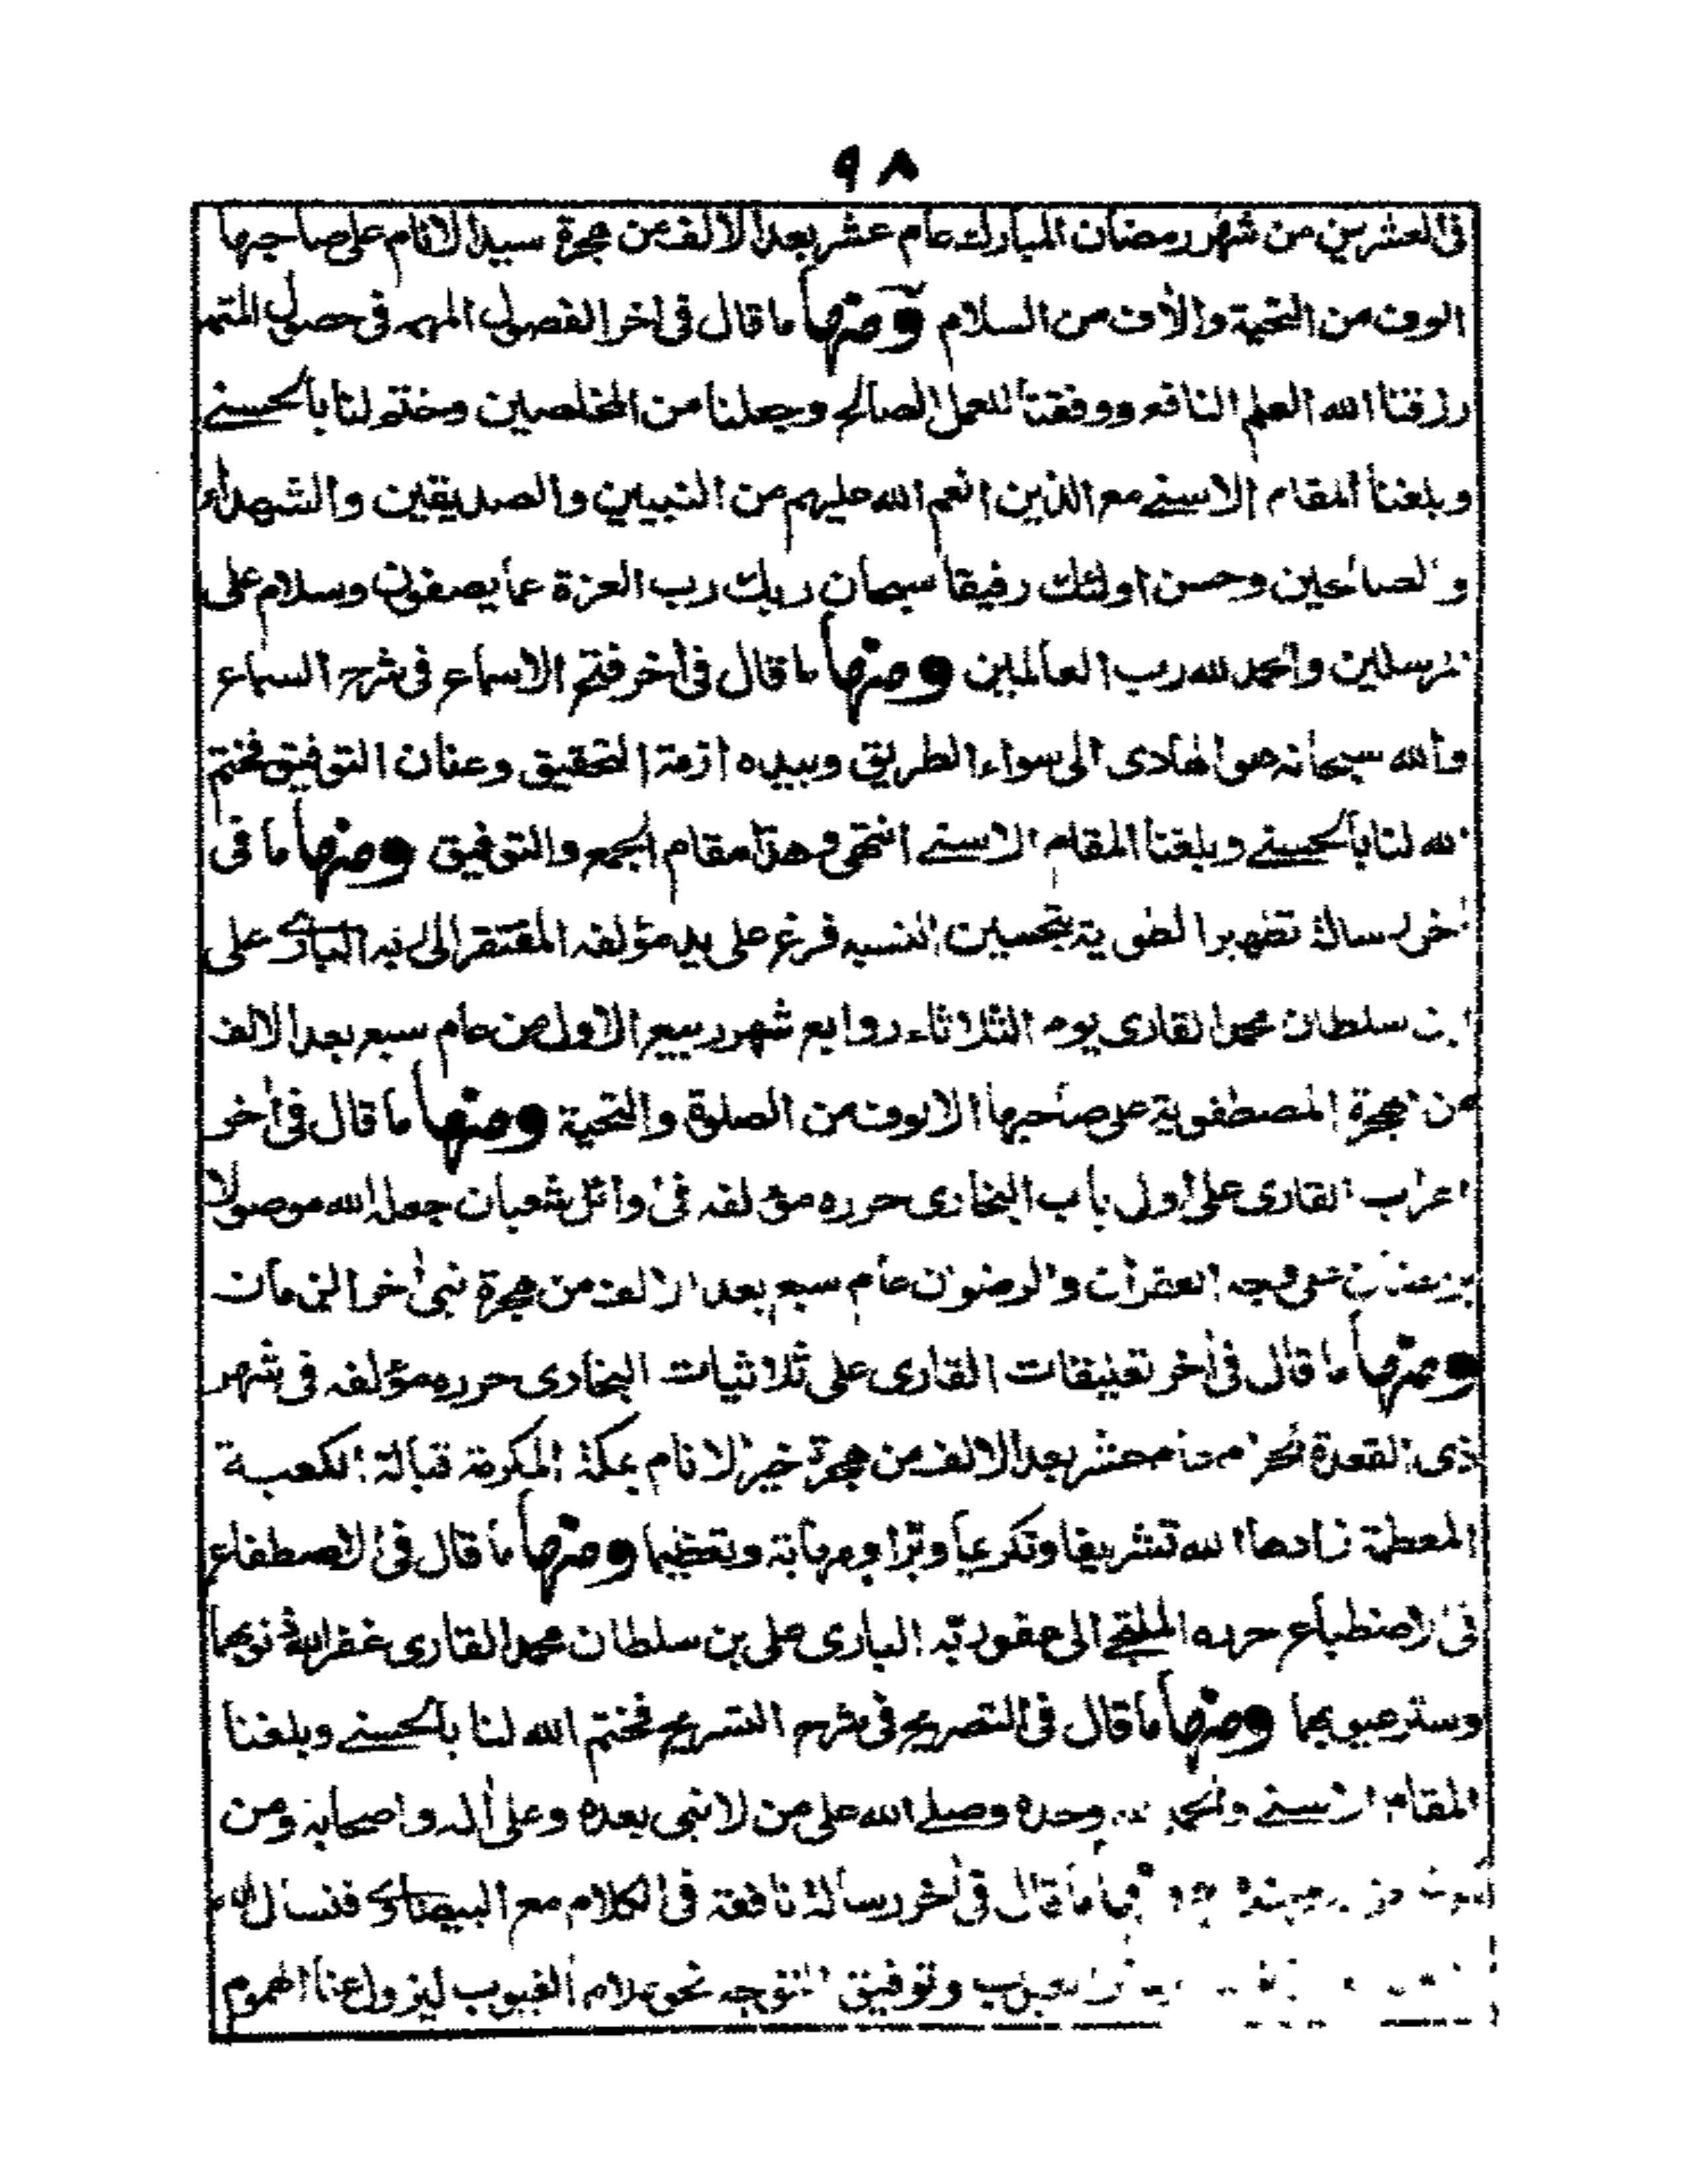 ٩٨
فى العشرين من شهر رمضان المبارك عام عشر بعد الالف من هجرة سيد الانام على صاحبها
الوف من التحية والأف من السلام ومنها ما قال فى اخر الفصول المهمه فى حصول المتمه
رزقنا الله العلم النافع ووفقنا للعمل الصالح وجعلنا من المخلصين وختم لنا بالحسنے
وبلغنا المقام الاسنے مع الذين انعم الله عليهم من النبيين والصديقين والشهداء
والصالحين وحسن اولئك رفيقا سبحان ربك رب العزة عما يصفون وسلام على
المرسلين والحمد لله رب العالمين ومنها ما قال فى أخر فتح الاسماع فى شرح السماع
والله سبحانه هو الهادى الى سواء الطريق وبيده ازمة التحقيق وعنان التوفيق فختم
الله لنا بالحسنے وبلغنا المقام الاسنے انتهى وهذا مقام الجمع والتوفيق ومنها ما فى
أخر رسالة تطهير الطوية بتحسين النسيه فرغ على يد مؤلفه المفتقر الى ربه البارى على
ابن سلطان محمد القارى يوم الثلاثاء روابع شهر ربيع الاول من عام سبع بعد الالف
من هجرة المصطفوية على صاحبها الالوف من الصلوة والتحية ومنها ما قال فى أخر
اعراب القارى على اول باب البخارى حرره مؤلفه فى اوائل شعبان جعله الله موصولا
برمضان على وجه الغفران والرضوان عام سبع بعد الالف من هجرة نبى أخر الزمان
ومنها ما قال فى أخر تعليقات القارى على ثلاثيات البخارى حرره مؤلفه فى شهر
ذى القعدة الحرام عام عشر بعد الالف من هجرة خير الانام بمكة المكرمة قبالة الكعبة
المعظمة زادها الله تشريفا وتكريما وبرا ومهابة وتعظيما ومنها ما قال فى الاصطفاع
فى الاضطباع حرره الملتجى الى عفو ربه البارى على بن سلطان محمد القارى غفر الله ذنوبهما
وستر عيوبهما ومنها ما قال فى التصريح فى شرح التسريح فختم الله لنا بالحسنے وبلغنا
المقام الاسنے والحمد لله وحده وصلے الله على من لا نبى بعده وعلى أله واصحابه ومن
ما قال فى أخر رسالة نافعة فى الكلام مع البيضاوى فنسال الله
وتوفيق التوجه نحو علام الغيوب ليزول عنا الهموم